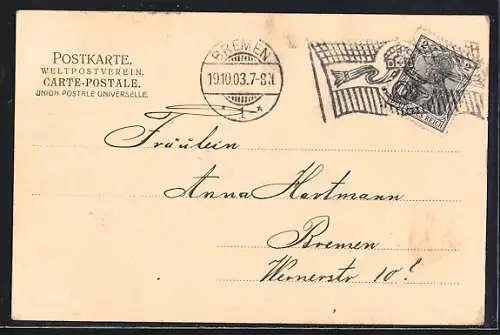 POSTKARTE.
WELTPOSTVEREIN.
CARTE-POSTALE.
UNION POSTALE UNIVERSELLE.
BREMEN
19.10.03.7-8N
* 1 *
REICH
Fräulein
Anna Hartmann
Bremen
Wernerstr 10!